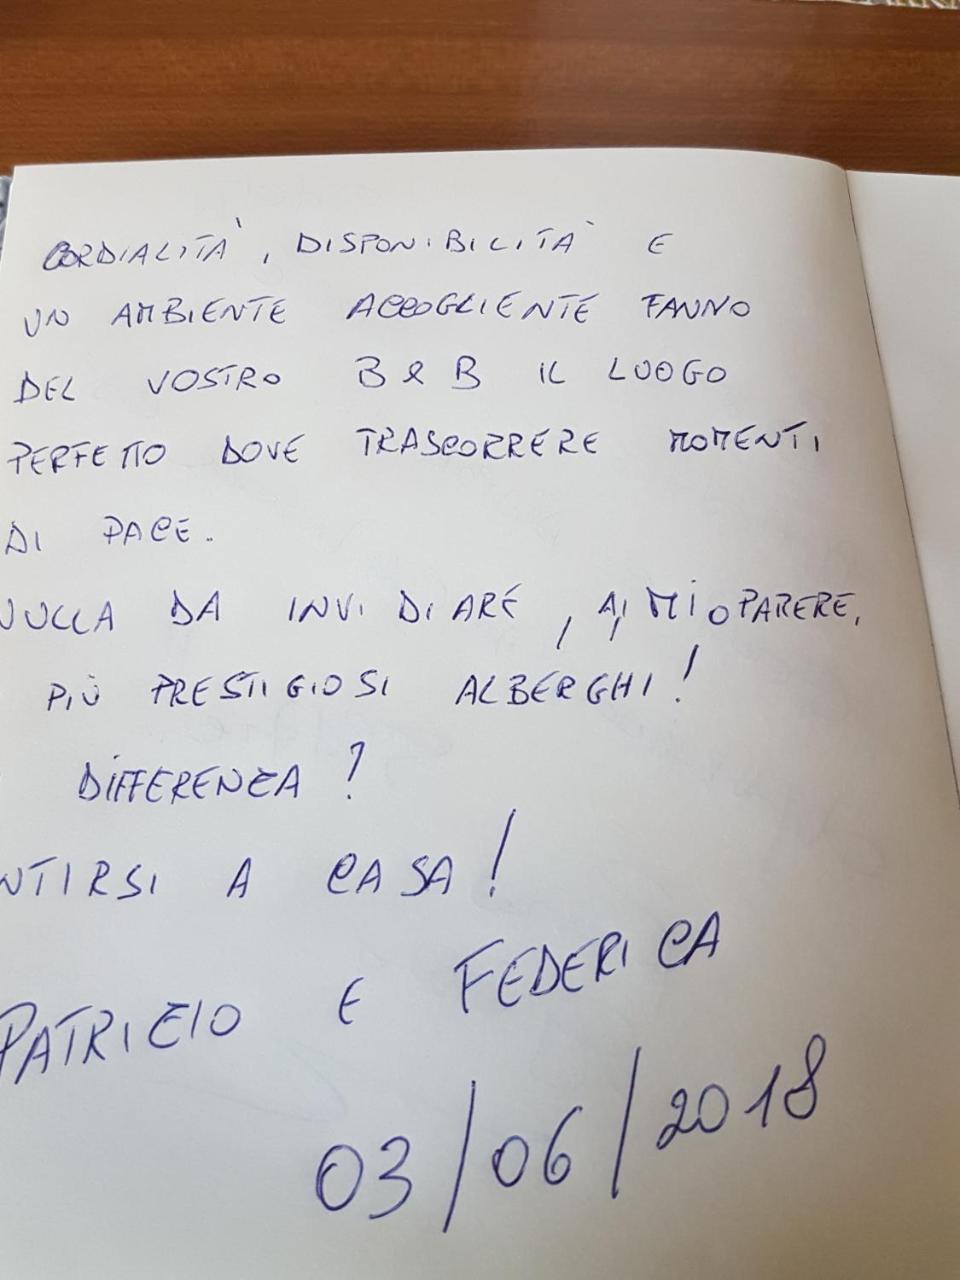 CORDIALITA', DISPONIBILITA' E
UN AMBIENTE ACCOGLIENTE FANNO
DEL VOSTRO B & B IL LUOGO
PERFETTO DOVE TRASCORRERE MOMENTI
DI PACE.
NULLA DA INVIDIARE, A MIO PARERE,
PIÙ PRESTIGIOSI ALBERGHI!
DIFFERENZA?
NTIRSI A CASA!
PATRIZIO E FEDERICA
03/06/2018